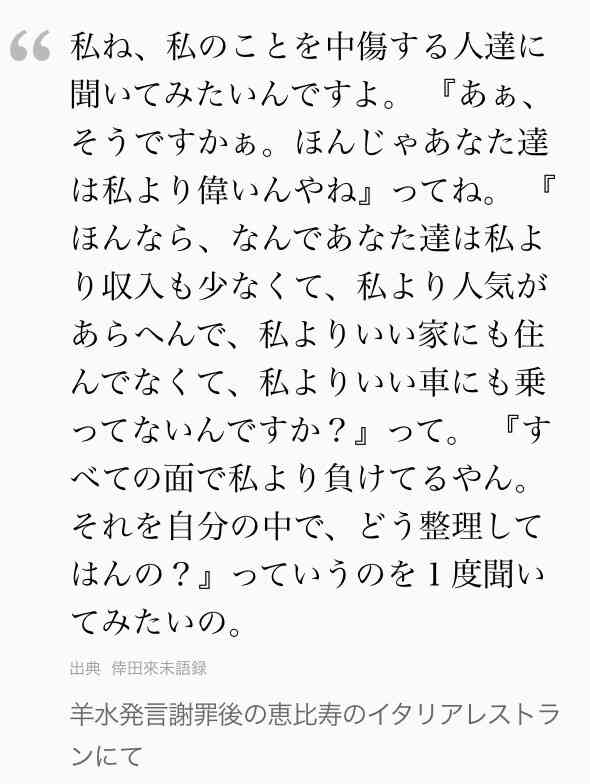 “
私ね、私のことを中傷する人達に
聞いてみたいんですよ。 『あぁ、
そうですかぁ。ほんじゃあなた達
は私より偉いんやね』ってね。 『
ほんなら、なんであなた達は私よ
り収入も少なくて、私より人気が
あらへんで、私よりいい家にも住
んでなくて、私よりいい車にも乗
ってないんですか？』って。 『す
べての面で私より負けてるやん。
それを自分の中で、どう整理して
はんの？』っていうのを１度聞い
てみたいの。
出典 倖田來未語録
羊水発言謝罪後の恵比寿のイタリアレストラ
ンにて